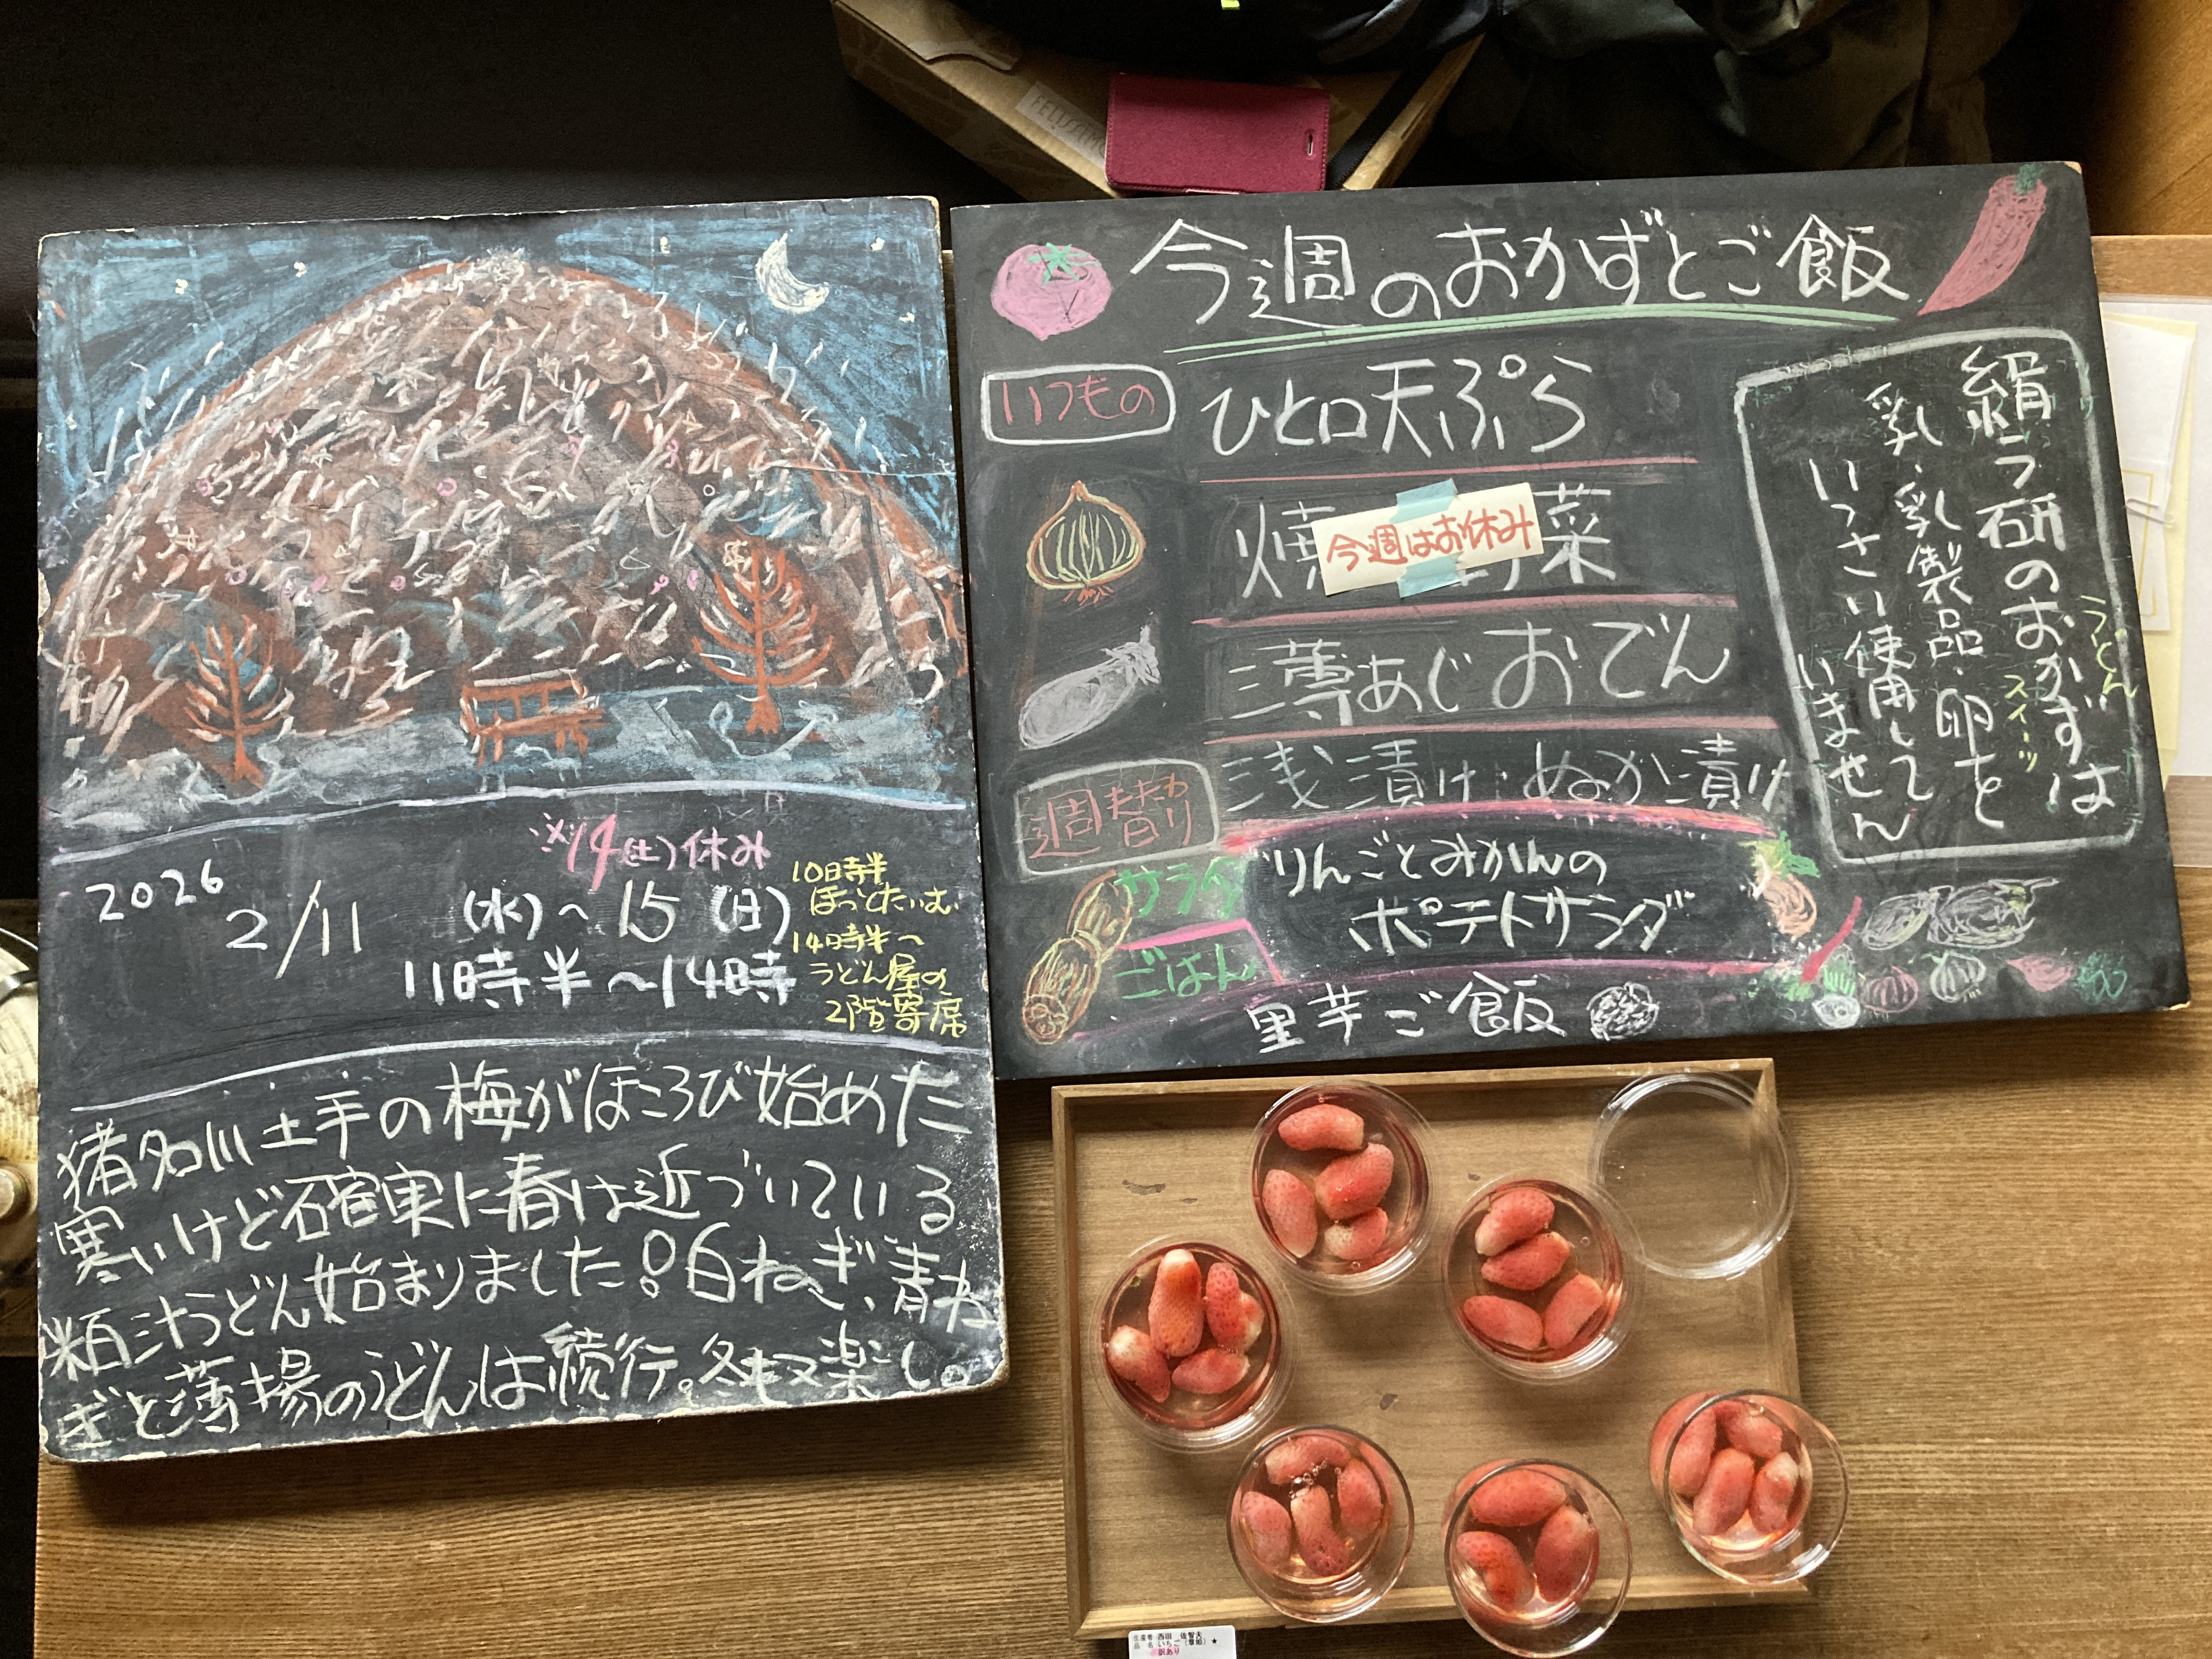 FELISSIMO
※14(土)休み
2026
2/11(水)～15(日)
11時半～14時
10時半
ほっとたいむ
14時半～
うどん屋の
2階寄席
猪名川土手の梅がほころび始めた
寒いけど確実に春は近づいている
粕汁うどん始まりました!白ねぎ、青ね
ぎと薄揚のうどんは続行。冬も又楽し。
今週のおかずとご飯
いつもの
ひと口天ぷら
焼 菜
今週はお休み
薄あじおでん
浅漬け・ぬか漬け
週替わり
サラダ
りんごとみかんの
ポテトサラダ
ごはん
里芋ご飯
うどん
スイーツ
絹ラ研のおかずは
乳・乳製品・卵を
いっさい使用して
いません
生産者 西田 佐智夫
品 名 いちご(章姫)★
訳あり